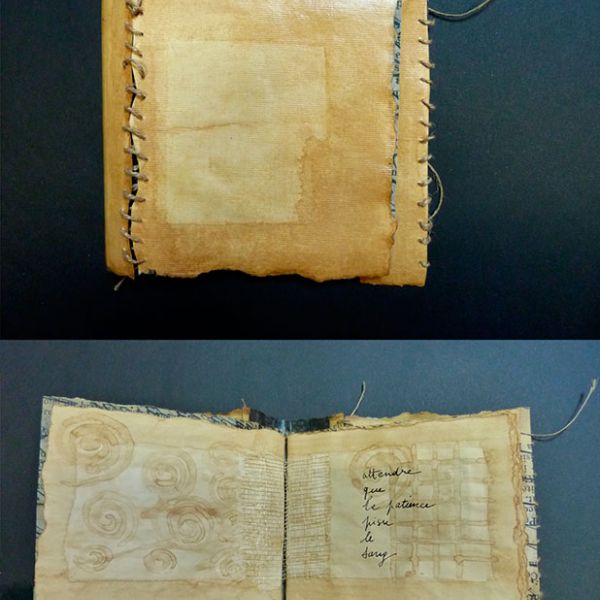 attendre
que
la patience
pisse
le
sang